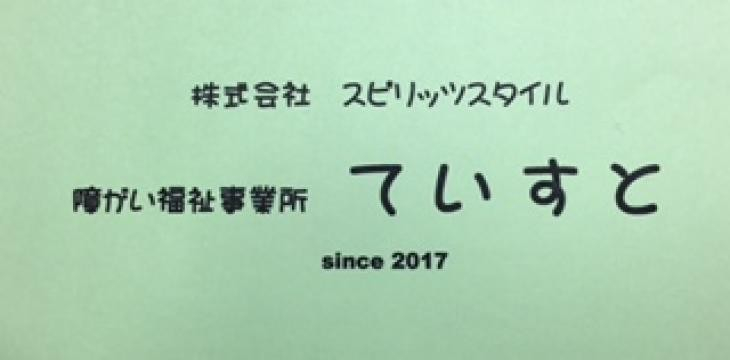 株式会社　スピリッツスタイル
障がい福祉事業所　ていすと
since 2017